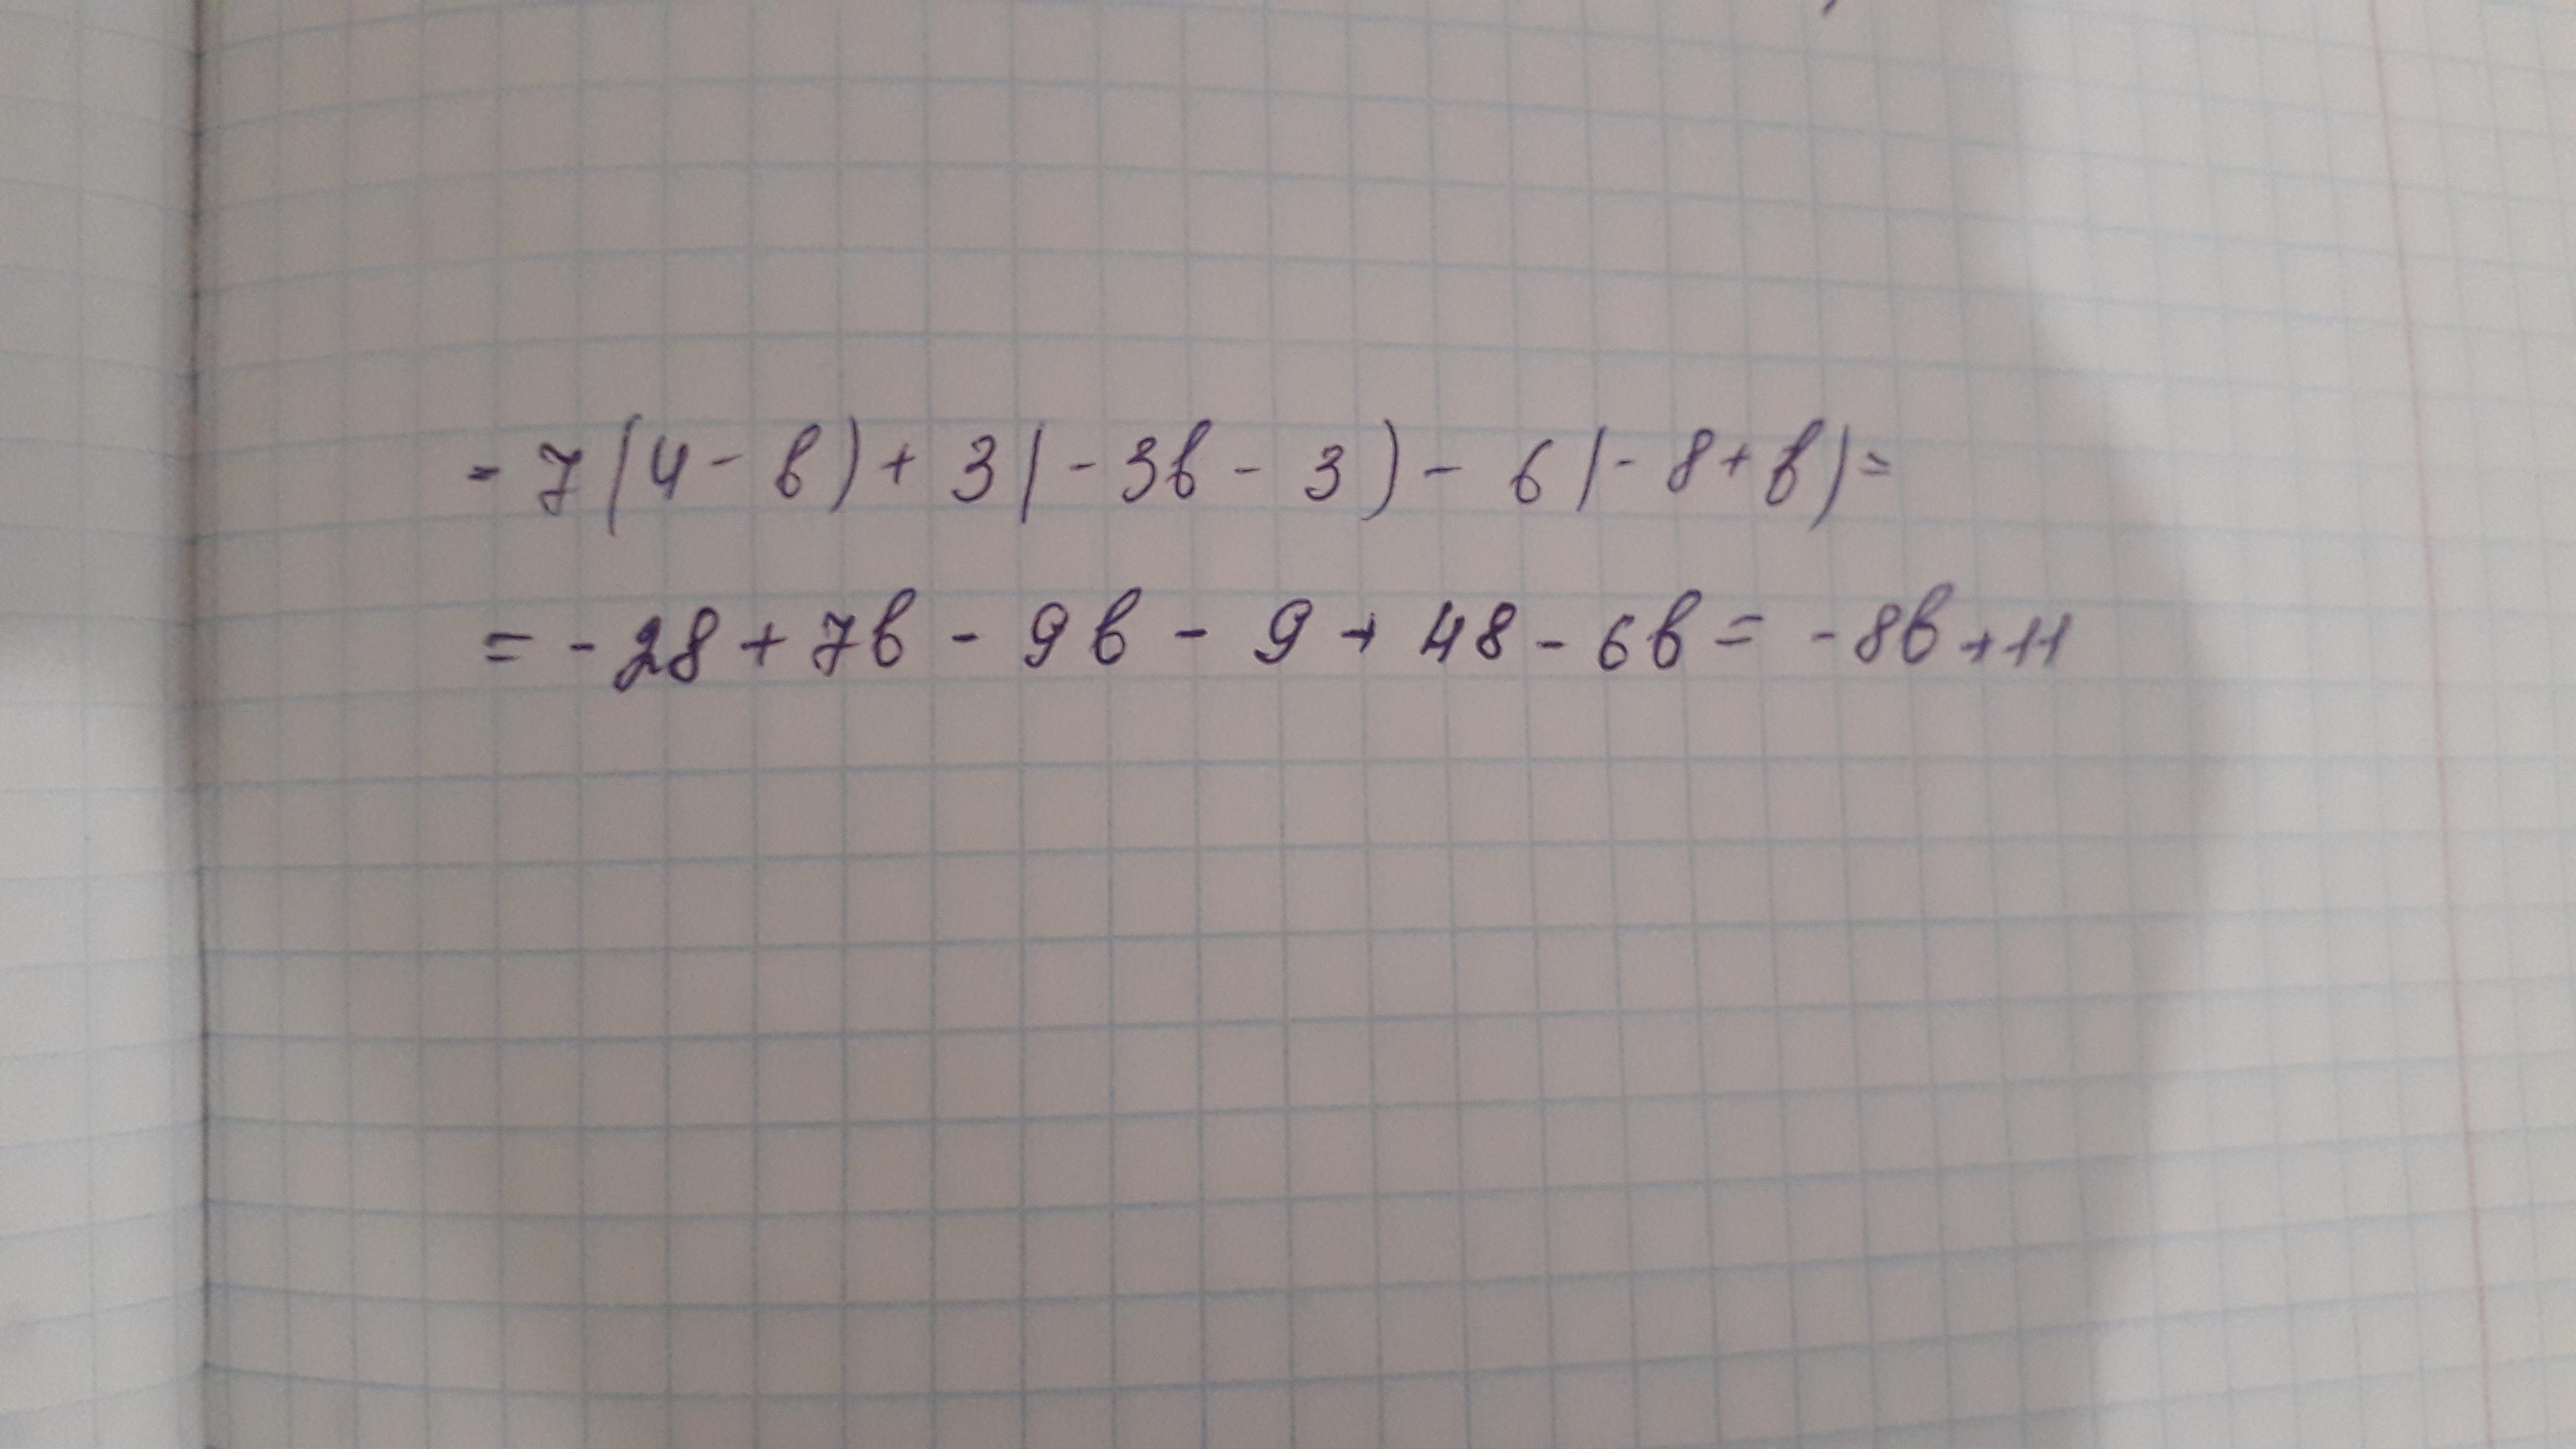 - 7(4 - b) + 3(- 3b - 3) - 6(- 8 + b) =
= - 28 + 7b - 9b - 9 + 48 - 6b = - 8b + 11